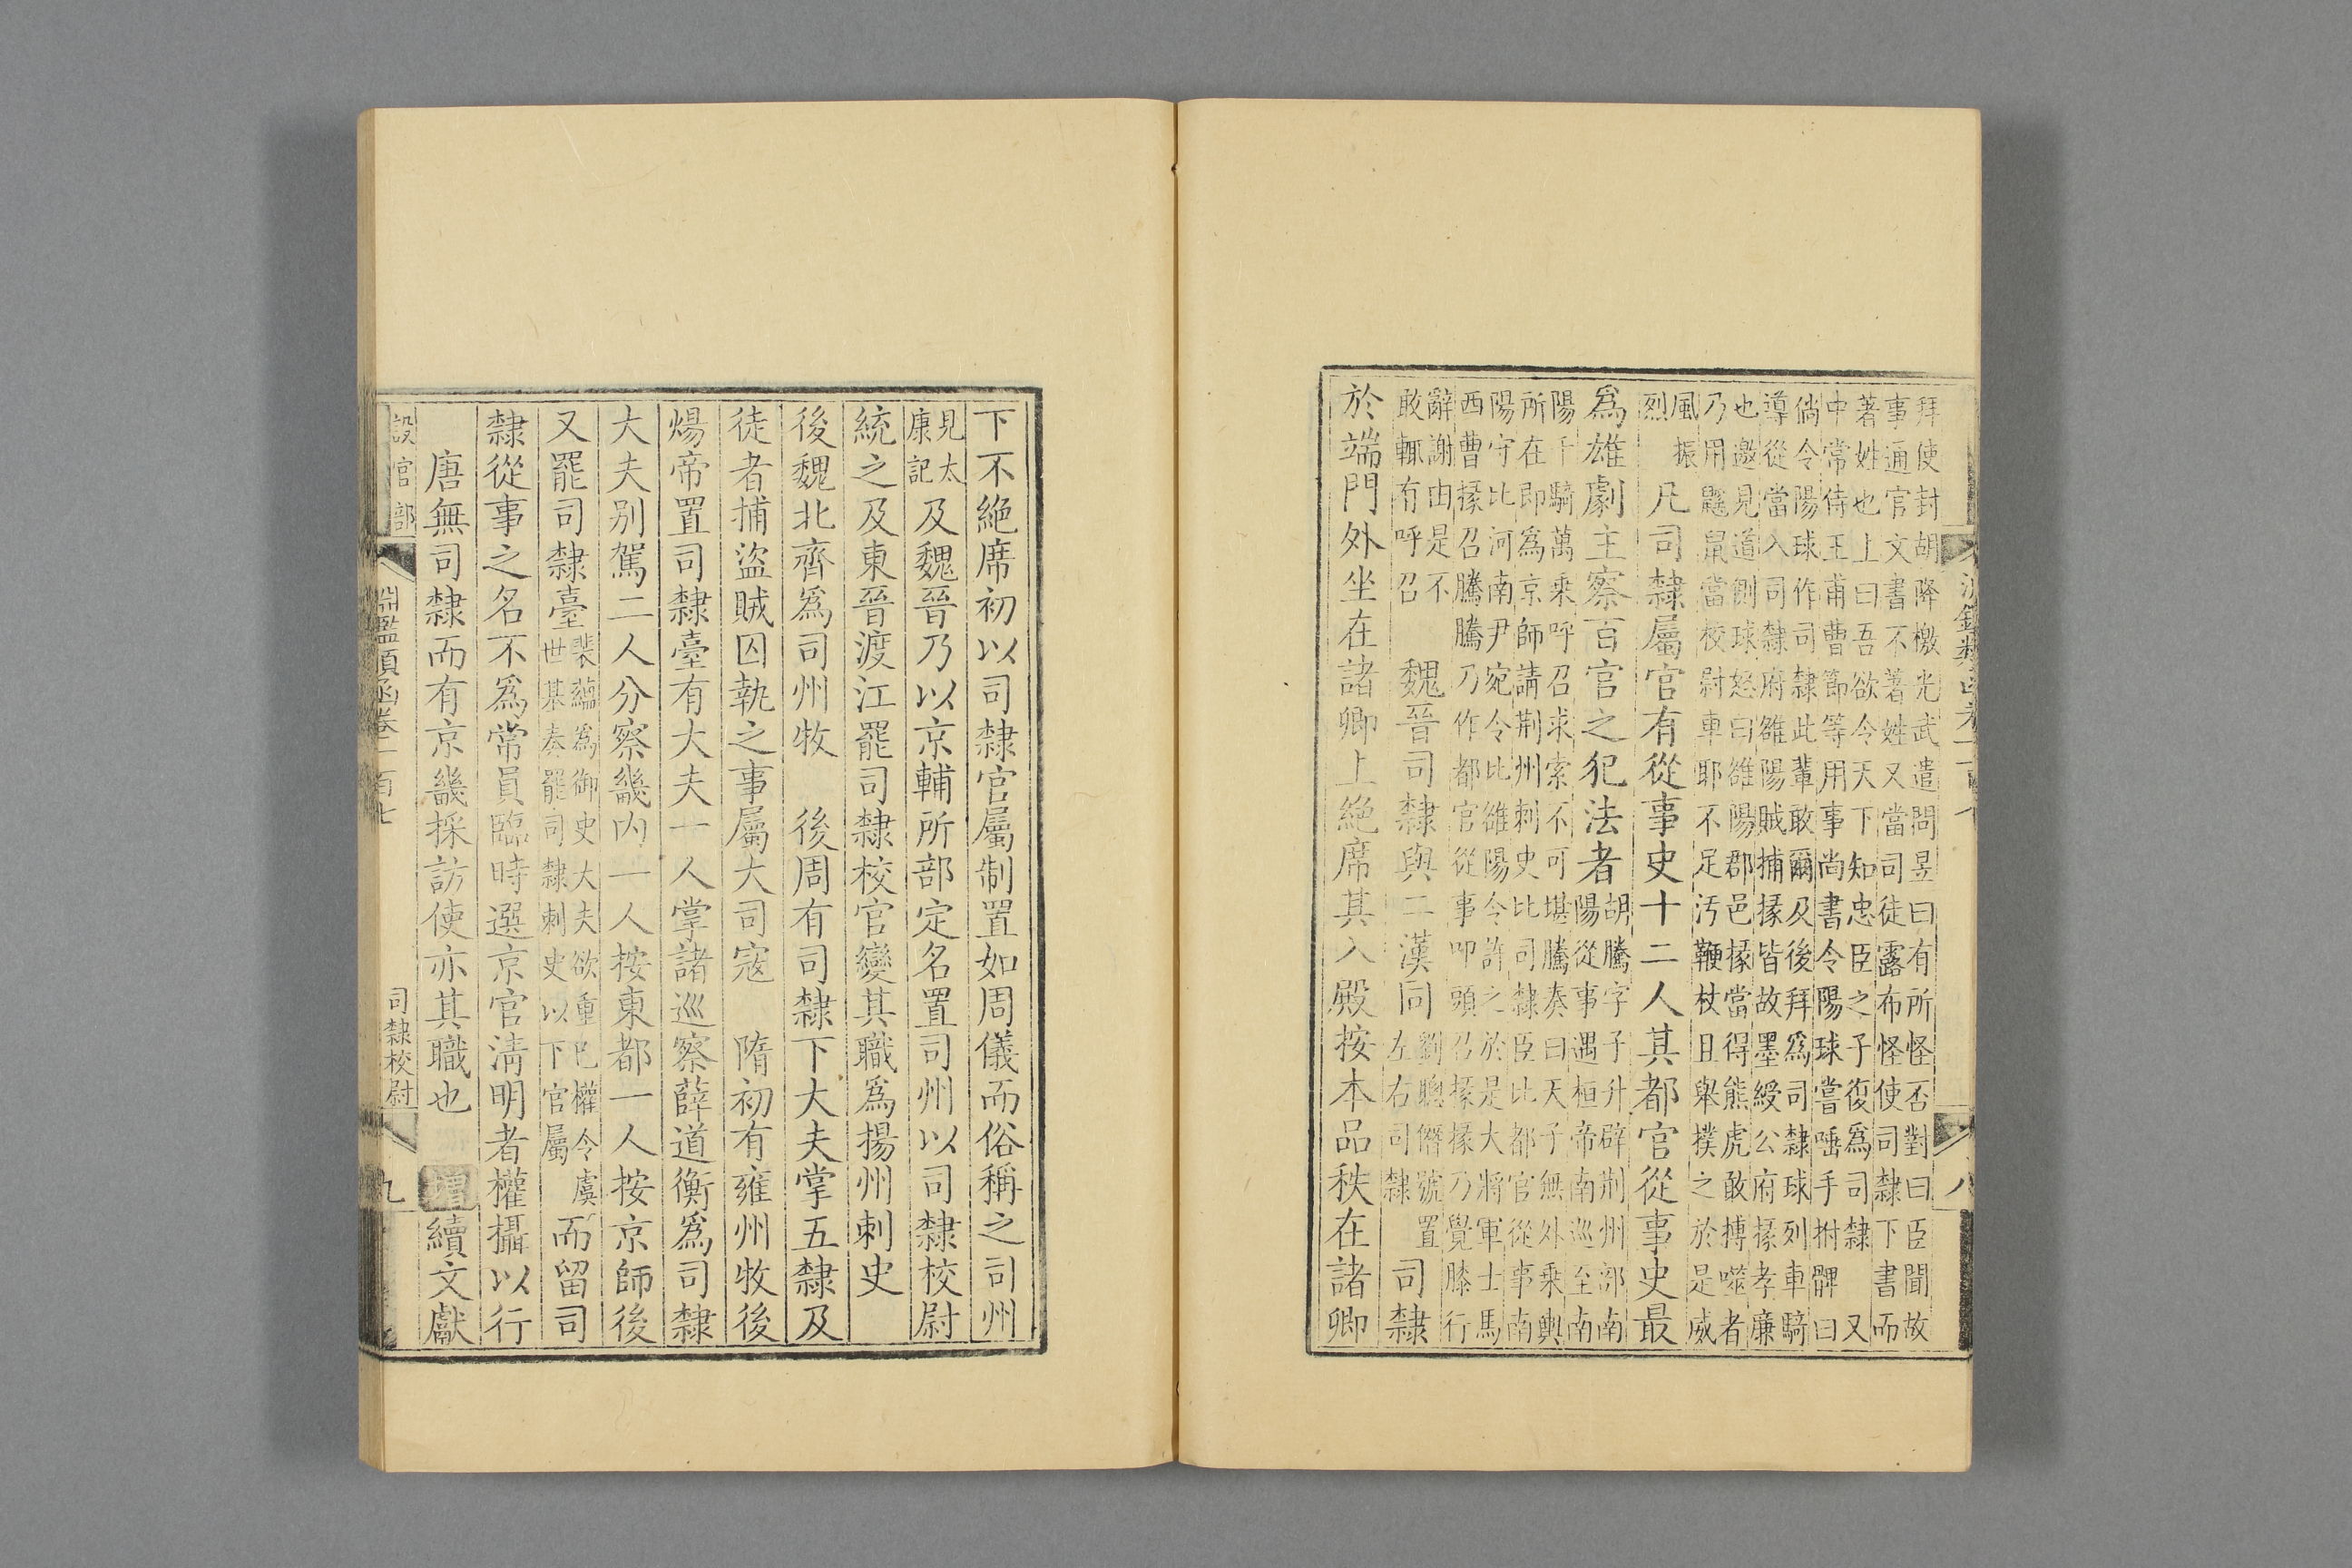 淵鑑類函卷二百七
八
拜使封胡降檄光武遣問昱曰有所怪否對曰臣聞故
事通官文書不著姓又當司徒露布怪使司隸下書而
著姓也上曰吾欲令天下知忠臣之子復爲司隸　又
中常侍王甫曹節等用事尚書令陽球嘗唾手拊髀曰
倘令陽球作司隸此輩敢爾及後拜爲司隸球列車騎
導從當入司隸府雒陽賊捕掾皆故墨綬公府掾孝廉
也邀見道側球怒曰雒陽郡邑掾當得熊虎敢搏噬者
乃用鼷鼠當校尉車耶不足汚鞭杖且舉撲之於是威
風振
烈
凡司隸屬官有從事史十二人其都官從事史最
爲雄劇主察百官之犯法者
胡騰字子升辟荆州部南
陽從事遇桓帝南巡至南
陽千騎萬乘呼召求索不可堪騰奏曰天子無外乘輿
所在即爲京師請荆州刺史比司隸臣比都官從事南
陽守比河南尹宛令比雒陽令許之於是大將軍士馬
西曹掾召騰騰乃作都官從事叩頭召掾掾乃覺膝行
辭謝由是不
敢輒有呼召
魏晉司隸與二漢同
劉聰僭號置
左右司隸
司隸
於端門外坐在諸卿上絶席其入殿按本品秩在諸卿
下不絶席初以司隸官屬制置如周儀而俗稱之司州
見太
康記
及魏晉乃以京輔所部定名置司州以司隸校尉
統之及東晉渡江罷司隸校官變其職爲揚州刺史
後魏北齊爲司州牧　後周有司隸下大夫掌五隸及
徒者捕盜賊囚執之事屬大司寇　隋初有雍州牧後
煬帝置司隸臺有大夫一人掌諸巡察薛道衡爲司隸
大夫别駕二人分察畿内一人按東都一人按京師後
又罷司隸臺
裴蘊爲御史大夫欲重己權令虞
世基奏罷司隸刺史以下官屬
而留司
隸從事之名不爲常員臨時選京官清明者權攝以行
唐無司隸而有京畿採訪使亦其職也
增
續文獻
設官部
淵鑑類函卷二百七
司隸校尉
九